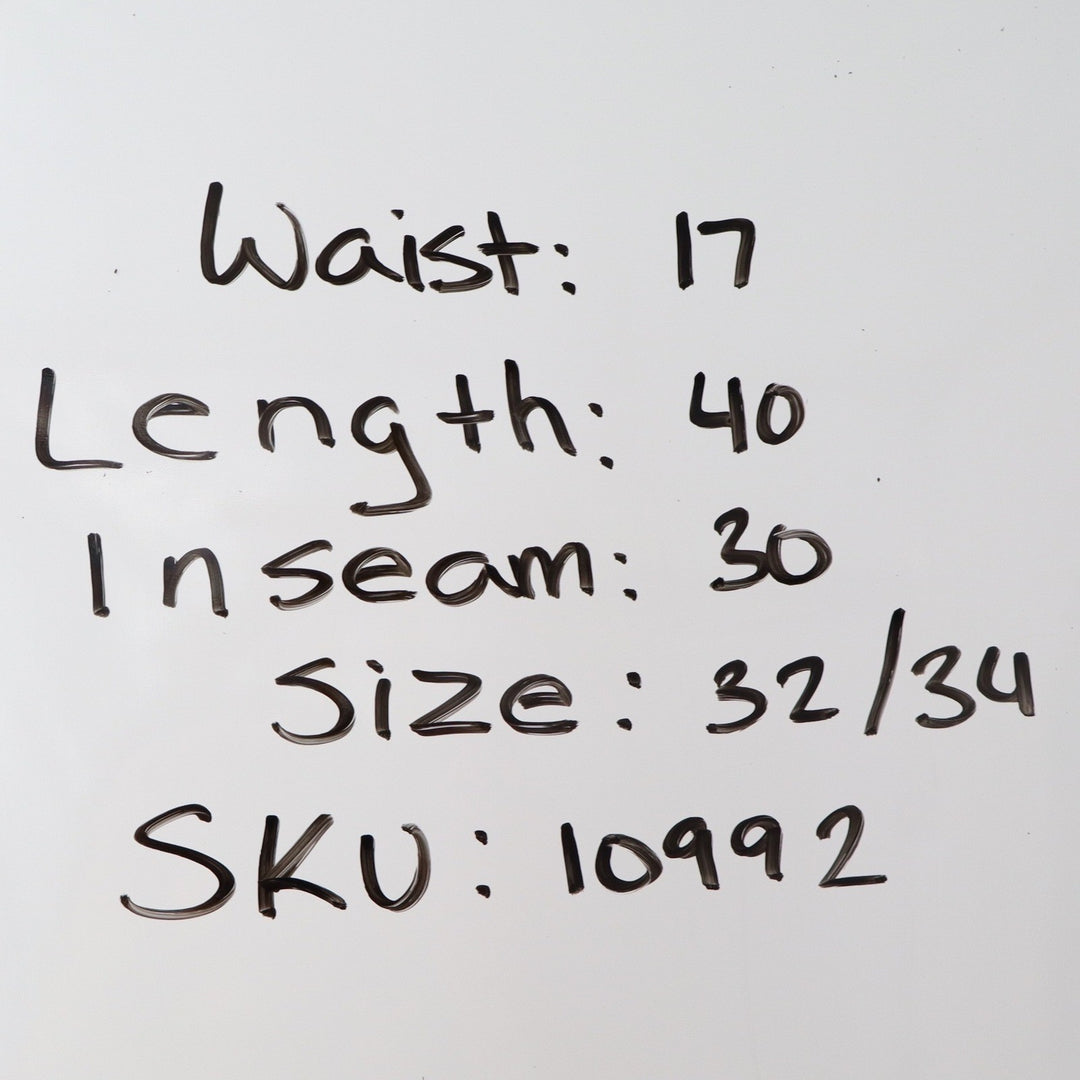 Waist: 17
Length: 40
Inseam: 30
Size: 32/34
SKU: 10992